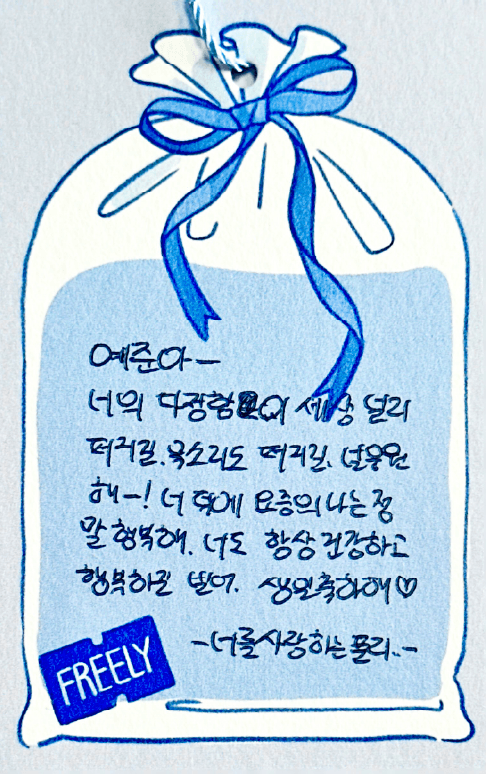 예준아-
너의 다정함이 세상 널리
퍼지길. 목소리도 퍼지길. 널 응원
해-! 너 덕에 요즘의 나는 정
말 행복해. 너도 항상 건강하고
행복하길 빌어. 생일축하해♡
-너를 사랑하는 플리..-
FREELY